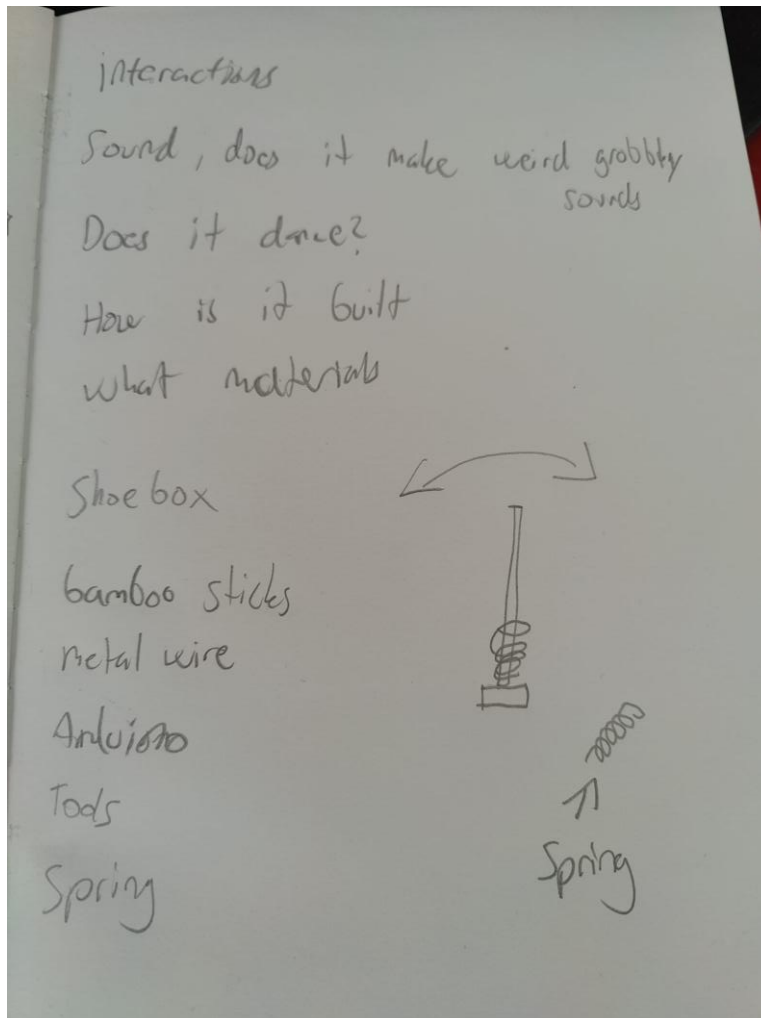 interactions
Sound, does it make weird grobbly
sounds
Does it dance?
How is it built
what materials
Shoebox
bamboo sticks
metal wire
Arduiono
Tools
Spring
Spring